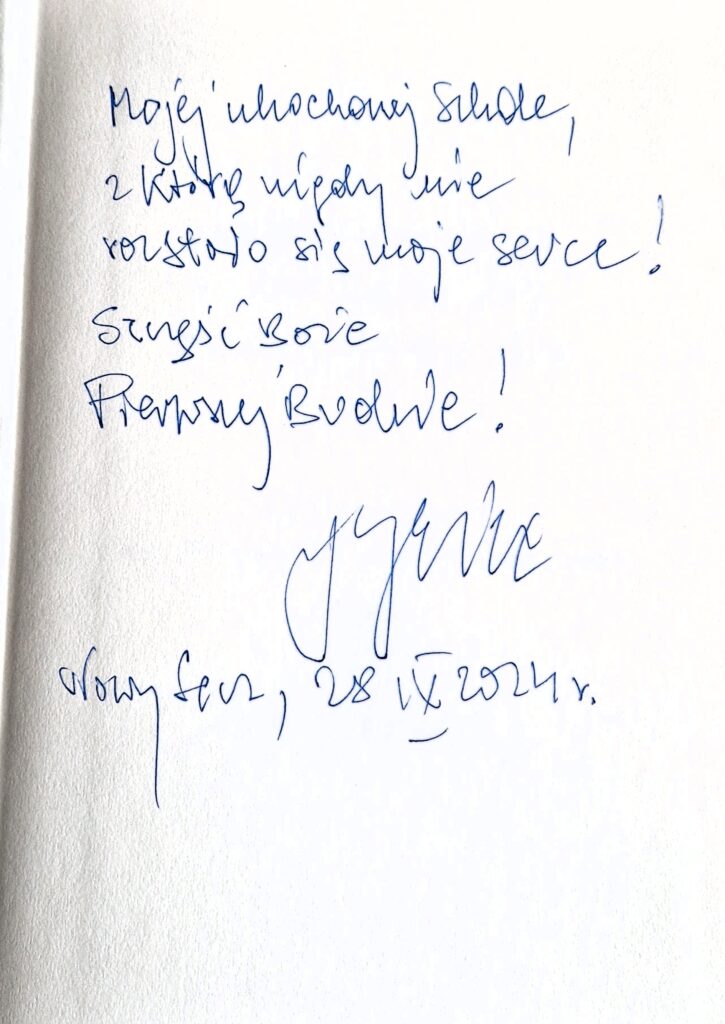 Mojej ukochanej Szkole,
z którą nigdy nie
rozstało się moje serce!
Szczęść Boże
Pierwszej Budzie!
Nowy Sącz, 28 IX 2024 r.